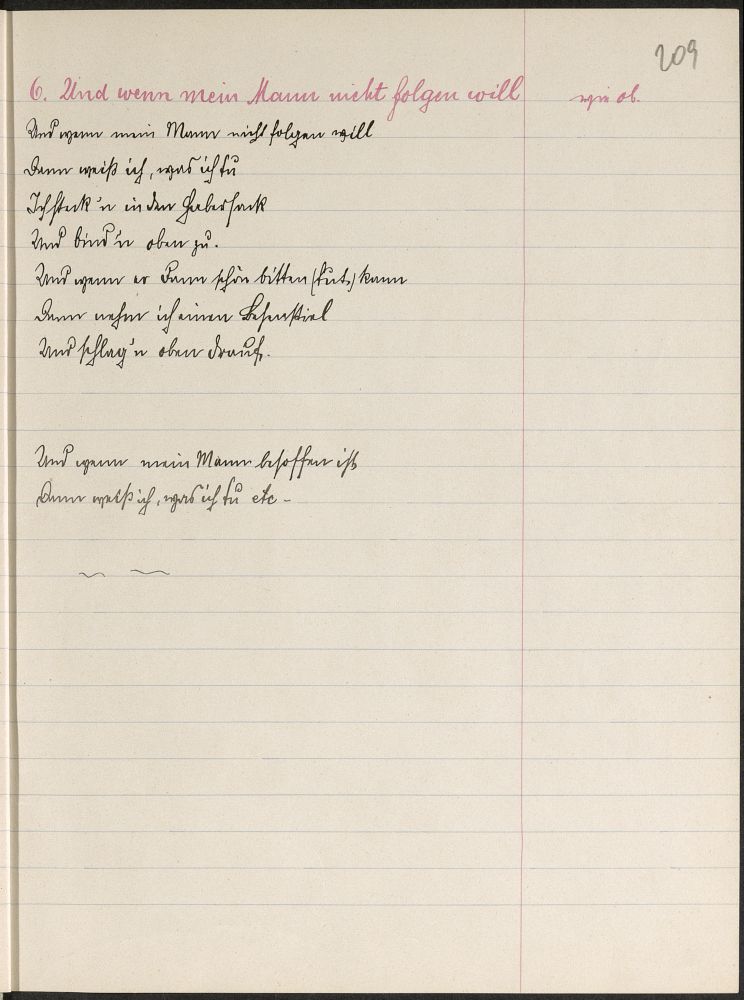 209
6. Und wenn mein Mann nicht folgen will wie ob.
Und wenn mein Mann nicht folgen will
Dann weiß ich, was ich tu
Ich steck'n in den Habersack
Und bind'n oben zu.
Und wenn er dann schön bitten (tut) kann
Dann nehm ich einen Besenstiel
Und schlag'n oben drauf.
Und wenn mein Mann besoffen ist
Dann weiß ich, was ich tu etc -